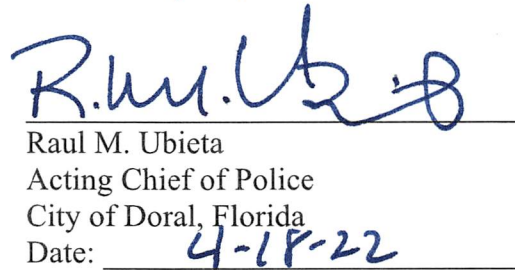 Raul M. Ubieta
Acting Chief of Police
City of Doral, Florida
Date: 4-18-22